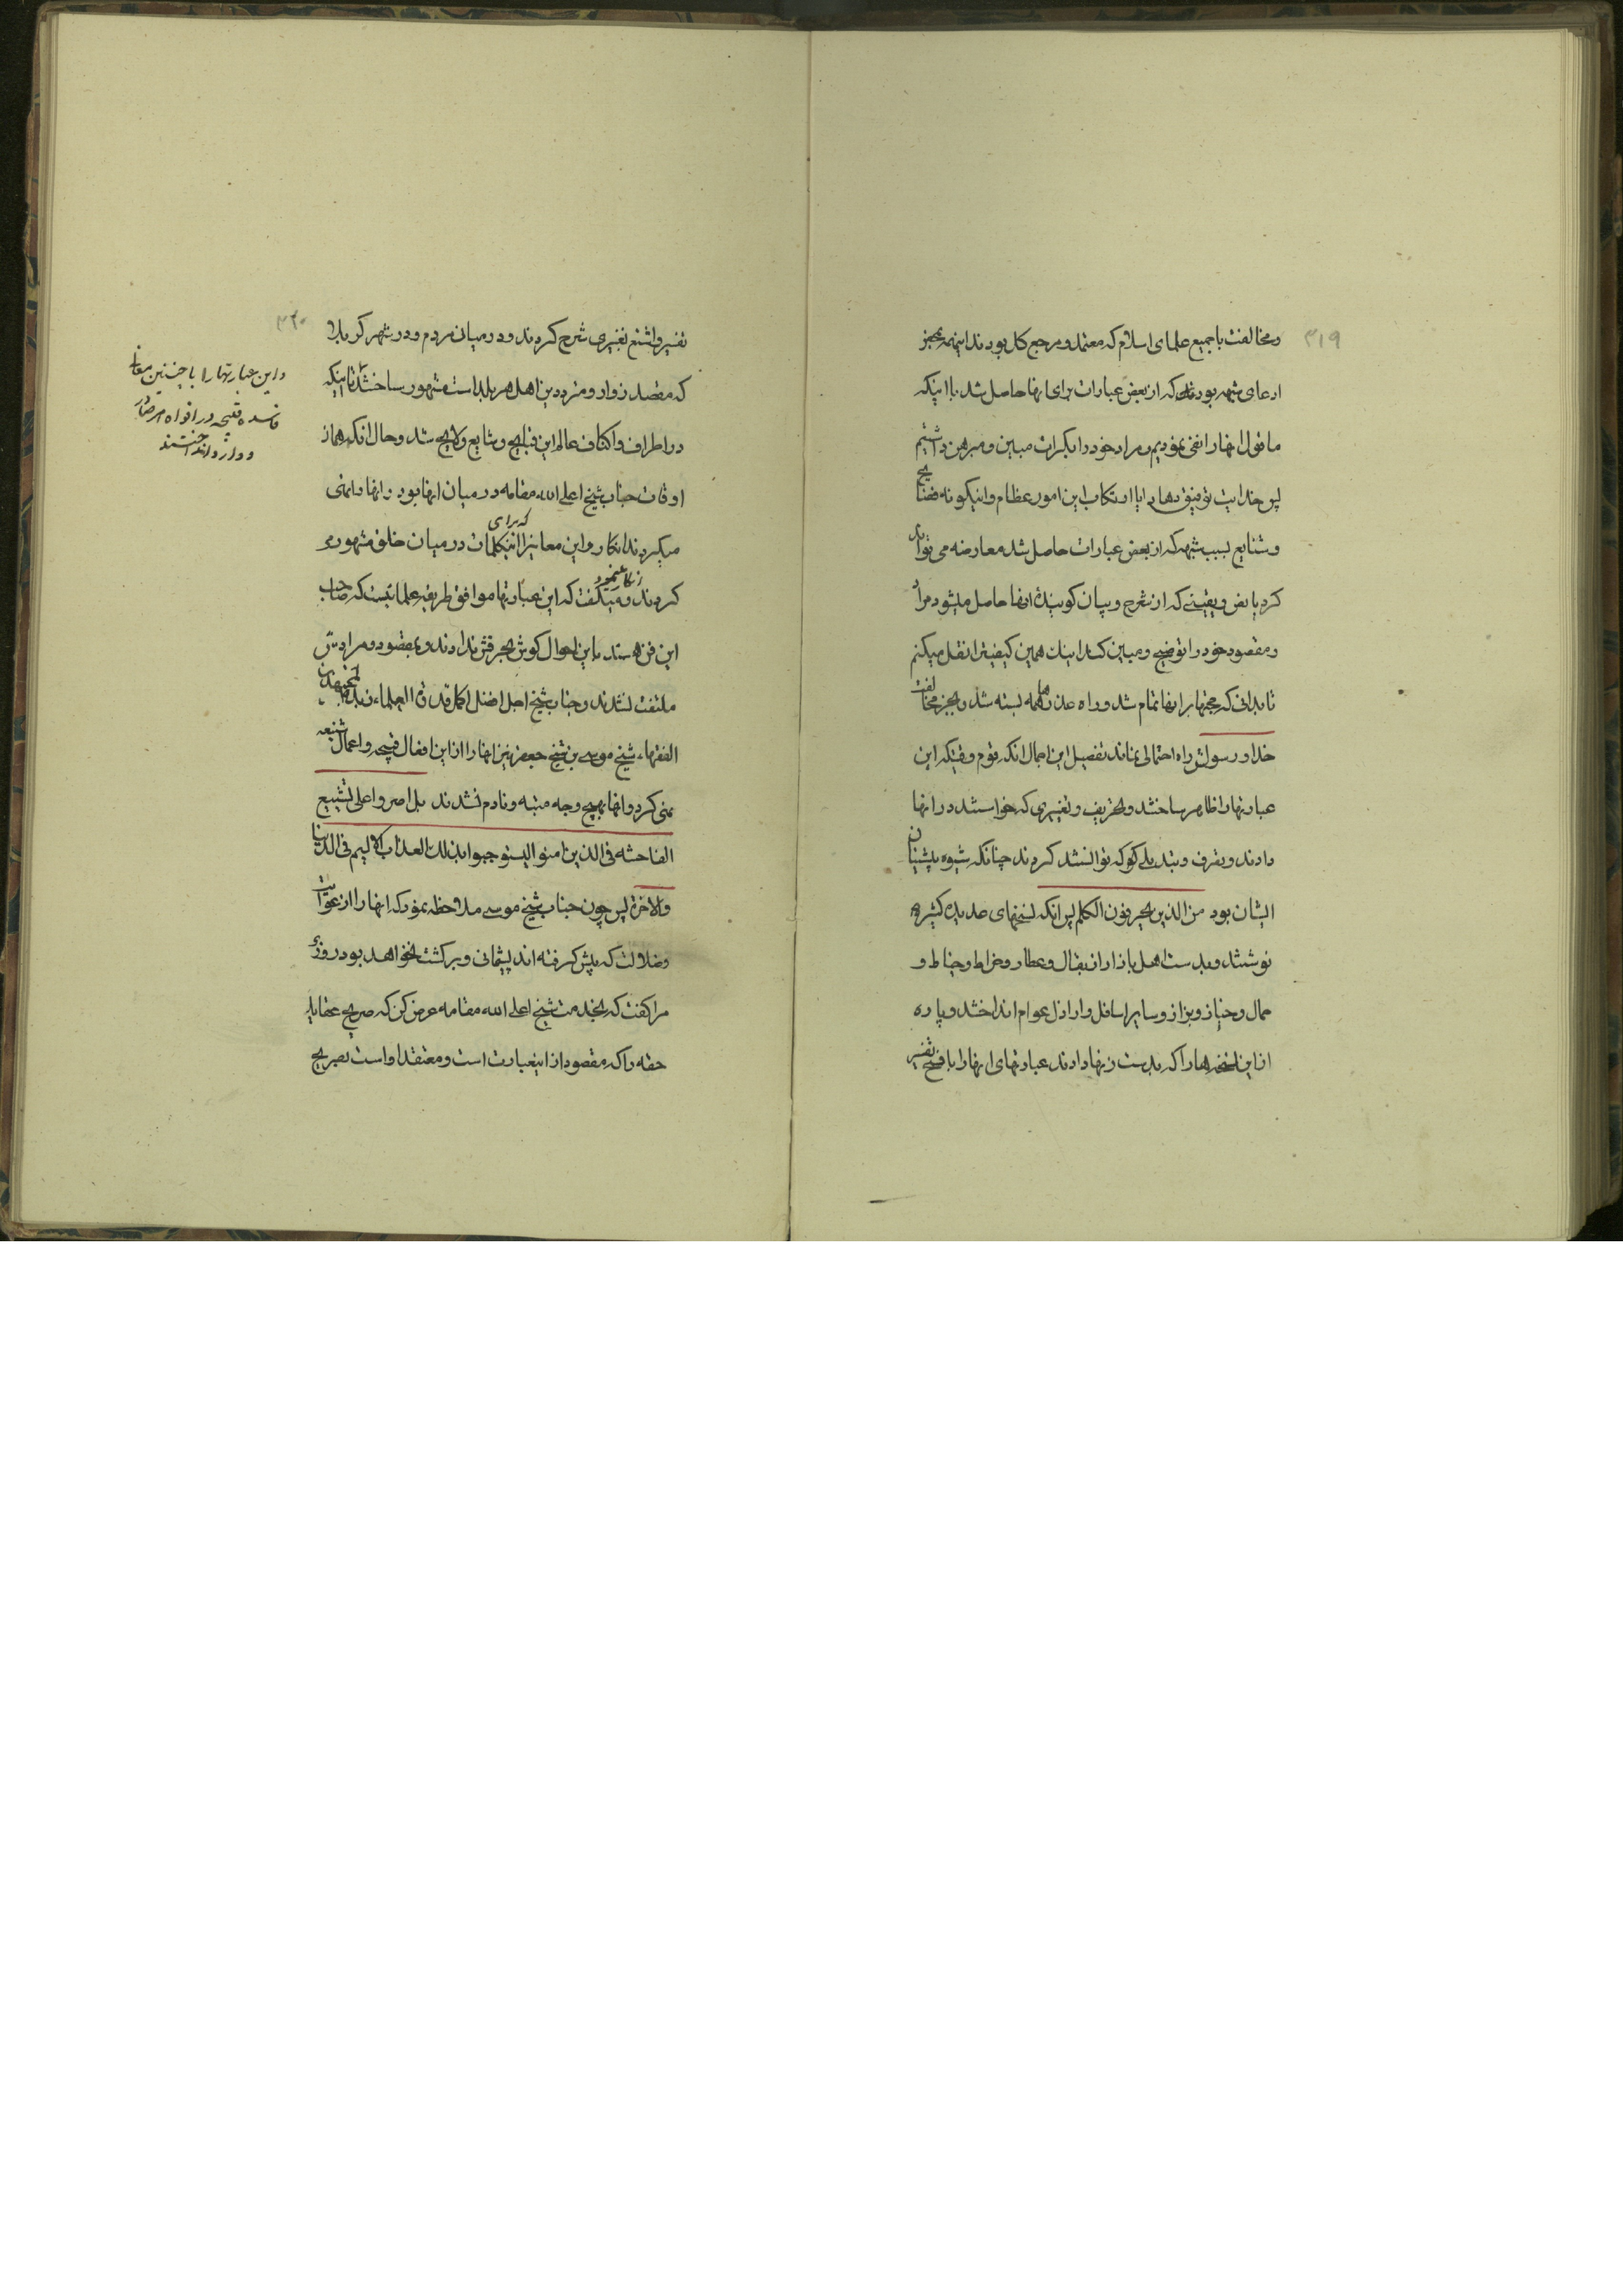 ٣١٩
و مخالفت با جمیع علمای اسلام که معتمد و مرجع کل بودند اینهمه بمجرد
ادعای شبهه بود که از بعض عبارات برای انها حاصل شد با اینکه
ما قول انها را نفی نمودیم و مراد خود را بکرات مبین و مبرهن داشتیم
پس خدایت توفیق دهاد ایا ارتکاب این امور عظام و اینگونه فضایح
و شنایع بسبب شبهه که از بعض عبارات حاصل شد معارضه می تواند
کرد با نص و یقینی که از شرح و بیان گوینده انها حاصل میشود مراد
و مقصود خود را توضیح و مبین کند اینک همین کیفیت را نقل میکنم
تا بدانی که حجتها بر انها تمام شد و راه عذرها همه بسته شد و بجز مخالفت
خدا و رسولش راه احتمالی نماند تفصیل این اجمال انکه قوم وقتیکه این
عبارتها را ظاهر ساختند و تحریف و تغییری که خواستند در انها
دادند و تصرف و تبدیلی که توانستند کردند چنانکه شیوه پیشینان
ایشان بود من الذین یحرفون الکلم پس انکه نسخهای عدیده کثیره
نوشتند و بدست اهل بازار از بقال و عطار و خراط و خیاط و
حمال و خباز و بزاز و سایر اسافل و اراذل عوام انداختند و پاره
از این نسخه ها را که بدست زنها دادند عبارتهای انها را با فضح تفسیر
٣٢٠
تفسیر و اشنع تغییری شرح کردند و در میان مردم و در شهر کربلا
که مقصد زوار و مترددین اهل هر بلد است مشهور ساختند تا اینکه
در اطراف و اکناف عالم این قبایح و شایع و لایح شد و حال انکه همان
اوقات جناب شیخ اعلی الله مقامه در میان انها بود و انها را نهی
میکردند انکار و این معانیرا که برای اینکلمات در میان خلق مشهور
کردند انکار مینمود و میگفت که این عبارتها موافق طریقه علمائیست که صاحب
این فن هستند باین احوال گوش بحرفش ندادند و بمقصود و مرادش
ملتفت نشدند و جناب شیخ اجل افضل اکمل قدوة العلماء زبدة المجتهدین
الفقهاء شیخ موسی بن شیخ جعفر نیز انها را از این افعال قبیحه و اعمال شنیعه
نهی کرد و انها بهیچ وجه متنبه و نادم نشدند بل اصروا علی تشییع
الفاحشه فی الذین امنوا لیستوجبوا بذلک العذاب الالیم فی الدنیا
والاخرة پس چون جناب شیخ موسی ملاحظه نمود که انها را از غوایت
و ضلالت که پیش گرفته اند پشیمانی و برگشت نخواهد بود روزی
مرا گفت که بخدمت شیخ اعلی الله مقامه عرض کن که صریح عقاید
حقه را که مقصود از اینعبارت است و معتقد او است بصریح
و این عبارتها را با چنین معانی
فاسده قبیحه در افواه
و انداختند